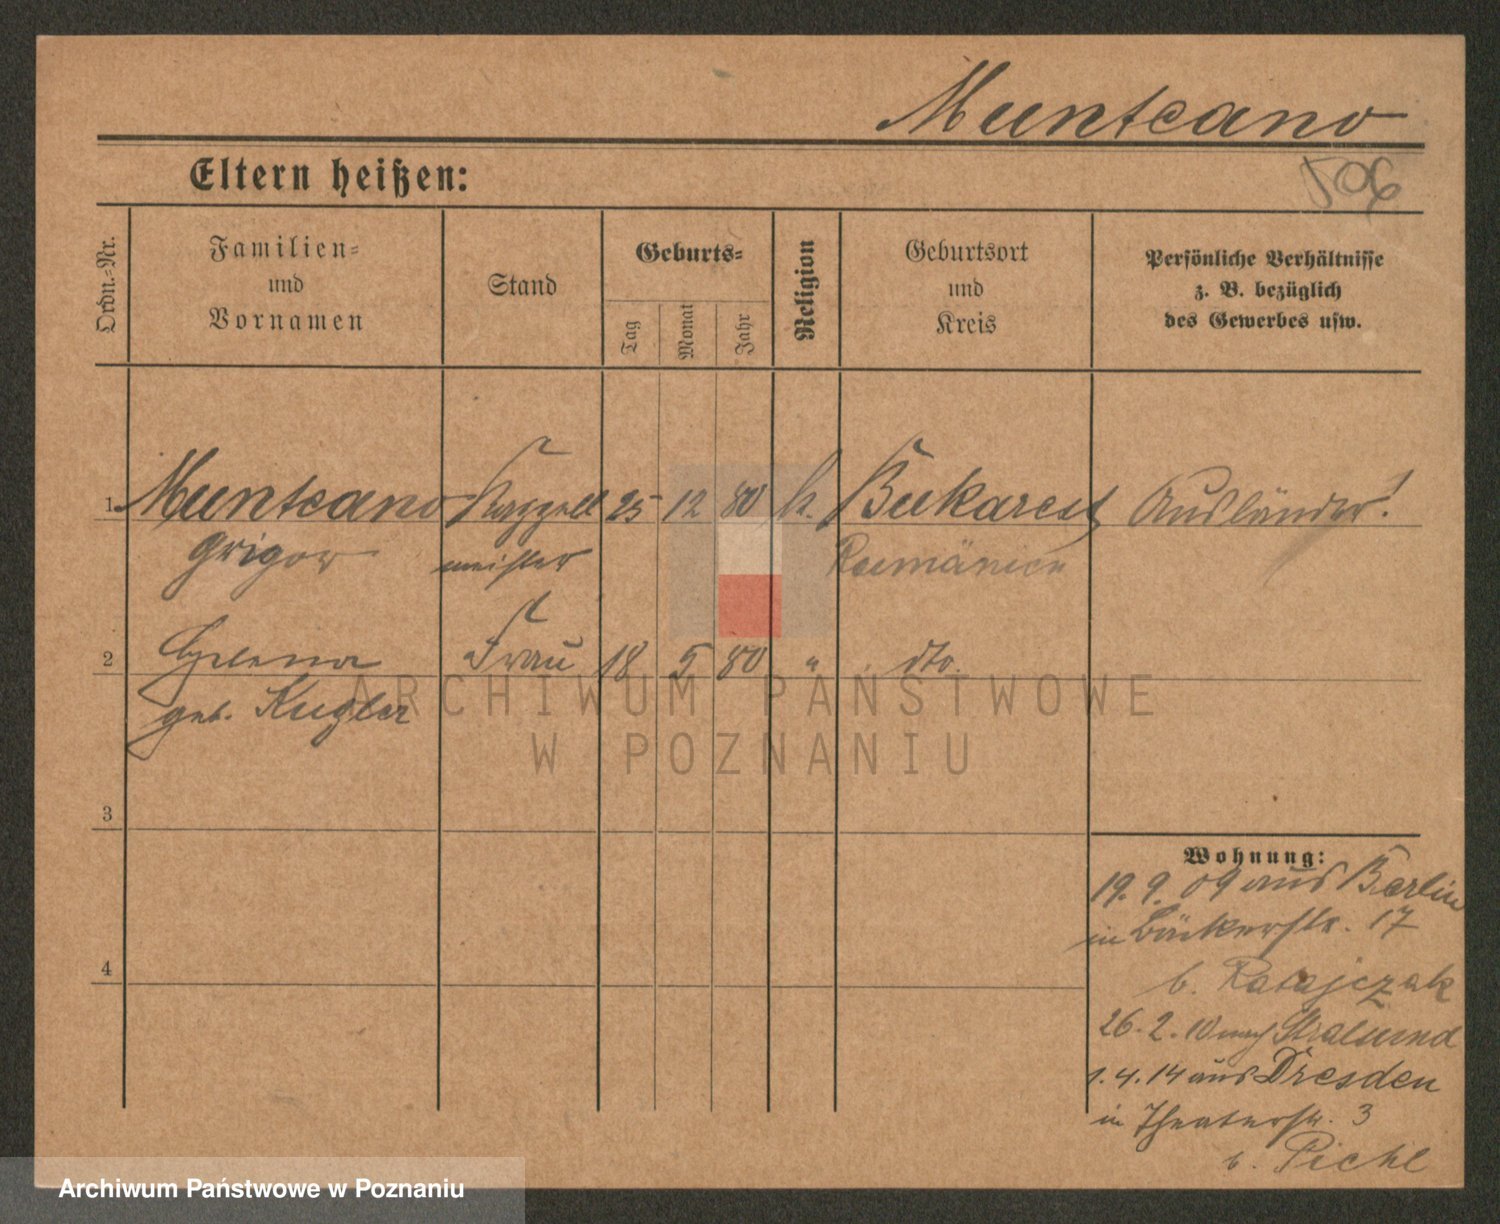 Munteano
596
Eltern heißen:
Ordn.-Nr.
Familien-
und
Vornamen
Stand
Geburts-
Tag
Monat
Jahr
Religion
Geburtsort
und
Kreis
Persönliche Verhältnisse
z. B. bezüglich
des Gewerbes usw.
1 Munteano Kapell 25 12 80 k. Bukarest Ausländer!
Grigor meister Rumänien
2 Helena Frau 18 5 80 " dto.
geb. Kugler
ARCHIWUM PAŃSTWOWE
W POZNANIU
3
4
Wohnung:
19. 9. 09 aus Berlin
in Bäckerstr. 17
b. Ratajczak
26. 2. 10 nach Stralsund
1. 4. 14 aus Dresden
in Theaterstr. 3
b. Pichl
Archiwum Państwowe w Poznaniu